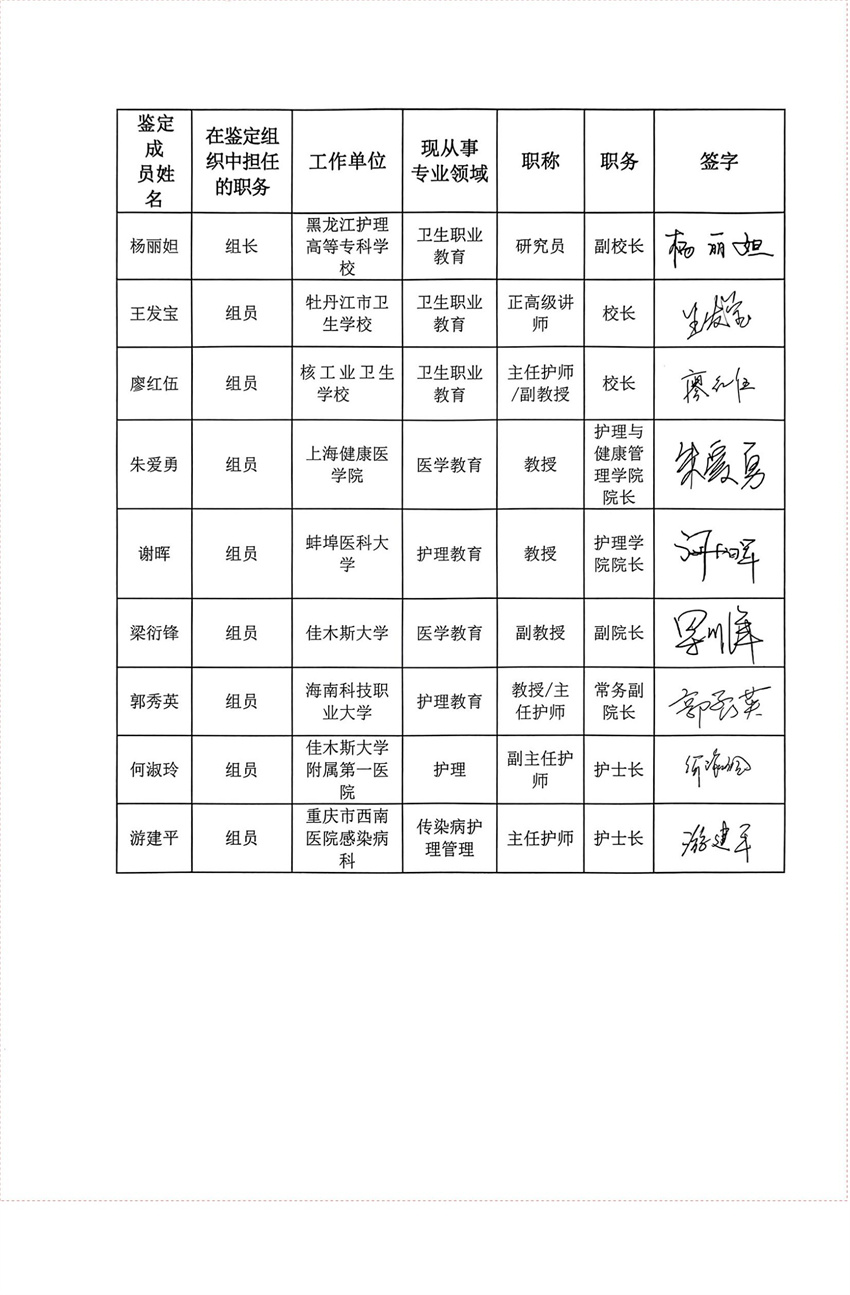 鉴定
成
员姓
名
在鉴定组
织中担任
的职务
工作单位
现从事
专业领域
职称
职务
签字
杨丽妲
组长
黑龙江护理
高等专科学
校
卫生职业
教育
研究员
副校长
杨丽妲
王发宝
组员
牡丹江市卫
生学校
卫生职业
教育
正高级讲
师
校长
王发宝
廖红伍
组员
核工业卫生
学校
卫生职业
教育
主任护师
/副教授
校长
廖红伍
朱爱勇
组员
上海健康医
学院
医学教育
教授
护理与
健康管
理学院
院长
朱爱勇
谢晖
组员
蚌埠医科大
学
护理教育
教授
护理学
院院长
谢晖
梁衍锋
组员
佳木斯大学
医学教育
副教授
副院长
郭秀英
组员
海南科技职
业大学
护理教育
教授/主
任护师
常务副
院长
郭秀英
何淑玲
组员
佳木斯大学
附属第一医
院
护理
副主任护
师
护士长
游建平
组员
重庆市西南
医院感染病
科
传染病护
理管理
主任护师
护士长
游建平